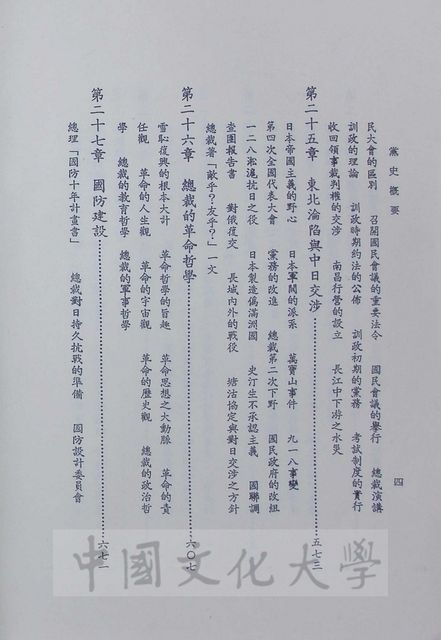 黨史概要
四
民大會的區別　召開國民會議的重要法令　國民會議的舉行　總裁演講
訓政的理論　訓政時期約法的公佈　訓政初期的黨務　考試制度的實行
收回領事裁判權的交涉　南昌行營的設立　長江中下游之水災
第二十五章　東北淪陷與中日交涉⋯⋯五七三
日本帝國主義的野心　日本軍閥的派系　萬寶山事件　九一八事變
第四次全國代表大會　黨務的改進　總裁第二次下野　國民政府的改組
一二八淞滬抗日之役　日本製造偽滿洲國　史汀生不承認主義　國聯調
查團報告書　對俄復交　長城內外的戰役　塘沽協定與對日交涉之方針
總裁著「敵乎？友乎？」一文
第二十六章　總裁的革命哲學⋯⋯六〇七
雪恥復興的根本大計　革命哲學的旨趣　革命思想之大動脈　革命的責
任觀　革命的人生觀　革命的宇宙觀　革命的歷史觀　總裁的政治哲
學　總裁的教育哲學　總裁的軍事哲學
第二十七章　國防建設⋯⋯六七一
總理「國防十年計畫書」　總裁對日持久抗戰的準備　國防設計委員會
中國文化大學